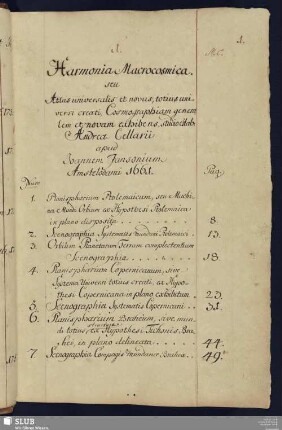 1.
Msc. 1.
Harmonia Macrocosmica.
seu
Atlas universalis et novus, totius uni-
versi creati, Cosmographiam genera-
lem et novam exhibens, studio et labore
Andreæ Cellarii
apud
Joannem Jansonium.
Amstelodami 1661.
Num. Pag.
1. Planisphærium Ptolemaicum, seu Machi-
na Mundi Orbium ex Hypothesi Ptolemaica
in plano disposita 8.
2. Scenographia Systematis Mundani Ptolemaici 13.
3. Orbium Planetarum Terram complectentium
Scenographia 18.
4. Planisphærium Copernicanum, sive
Systema Universi totius creati, ex Hypo-
thesi Copernicana in plano exhibitum 23.
5. Scenographia Systematis Copernicani 31.
6. Planisphærium Braheum, sive mun-
di totius, structura ex Hypothesi Tichonis Bra-
hei, in plano delineata 44.
7. Scenographia Compagis Mundanæ Brahea 49.
SLUB